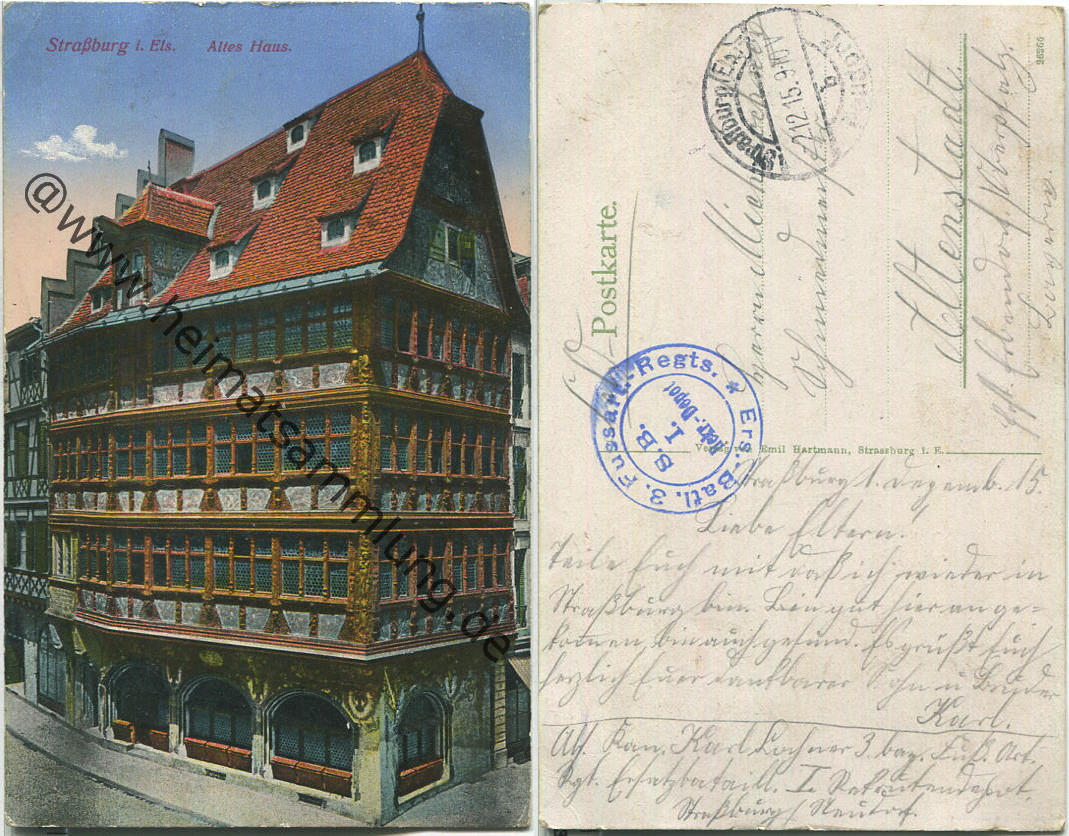 Straßburg i. Els. Altes Haus.
@www.heimatsammlung.de
Postkarte.
Straßburg (Els.)
2.12.15. 9-10 V
3. Fussart.-Regts. * Ers.-Batl.
S.B.
I.
Rekr.-Depot
Verlag von Emil Hartmann, Strassburg i. E.
26266
Herrn Michael
Schmiedmeister
Altenstadt
Pst. Erbendorf, Oberpfalz.
Bayern.
Straßburg 1. Dezemb. 15.
Liebe Eltern!
Teile Euch mit daß ich wieder in
Straßburg bin. Bin gut hier ange-
kommen, bin auch gesund. Es grüßt Euch
herzlich Euer dankbarer Sohn u. Bruder
Karl.
Abs. Kan. Karl Lochner 3. bay. Fuß. Art.
Rgt. Ersatzbataill. I. Rekrutendepot.
Straßburg / Neudorf.